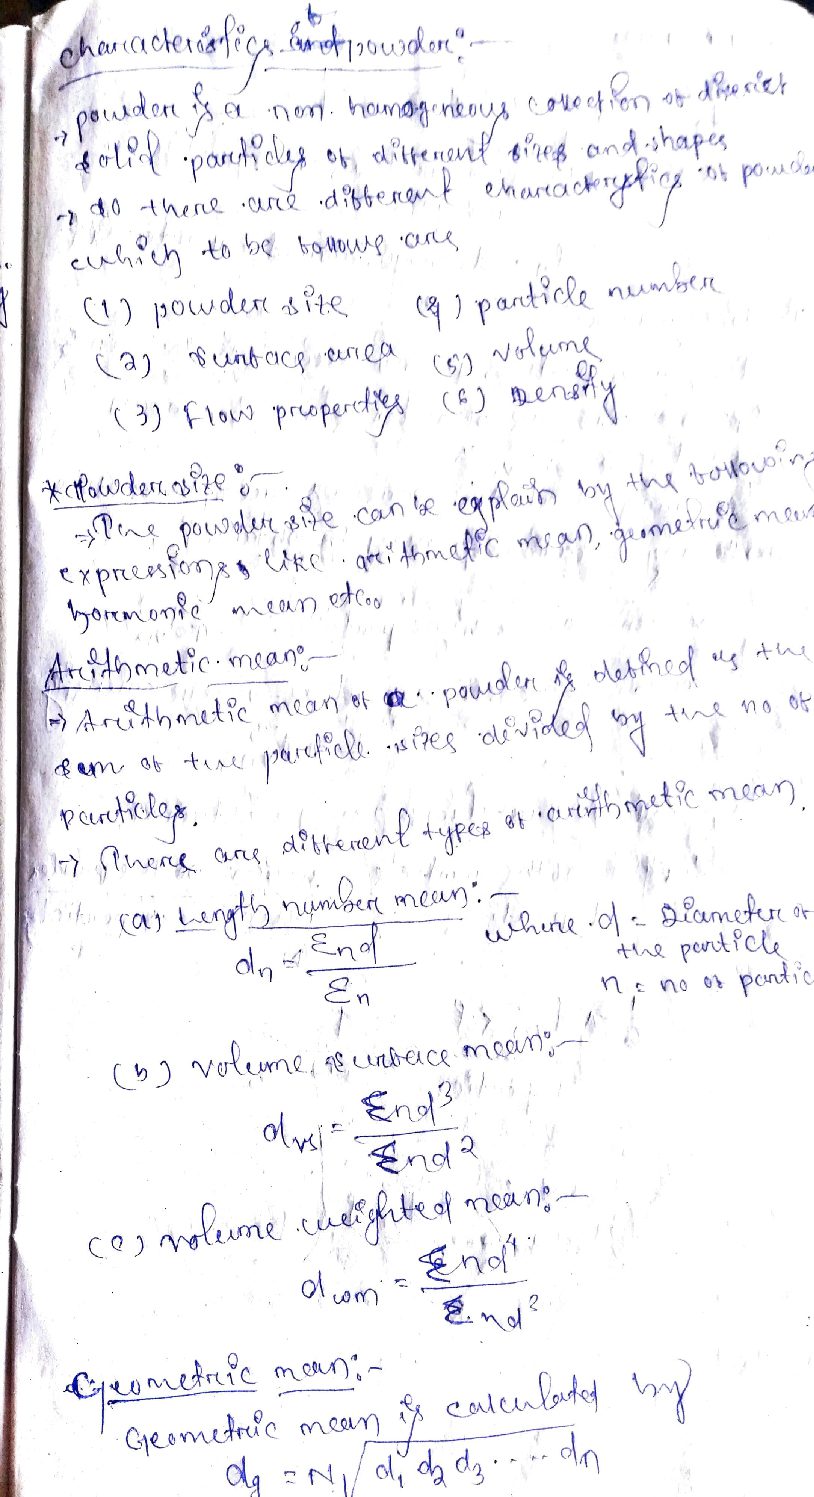 Characteristics of powder :-
→ powder is a non. homogeneous collection of discrict
solid particles of different sizes and shapes
→ so there are different characterstics of powder
which to be follows are,
(1) powder size (4) particle number
(2) surface area (5) volume
(3) Flow properties (6) Density
* Powder size :-
→ The powder size can be explain by the following
expressions like arithmetic mean, geometric mean
hormonic mean etc..
Arithmetic mean :-
→ Arithmetic mean of a powder is defined as the
sum of the particle sizes devided by the no of
particles.
→ There are different types of arithmetic mean.
(a) Length number mean :-
dn = Σnd / Σn where d = Diameter of
the particle
n = no of partic
(b) volume surface mean :-
dvs = Σnd³ / Σnd²
(c) volume weighted mean :-
dwm = Σnd⁴ / Σnd³
Geometric mean :-
Geometric mean is calculated by
dg = N√d₁ d₂ d₃ ..... dn